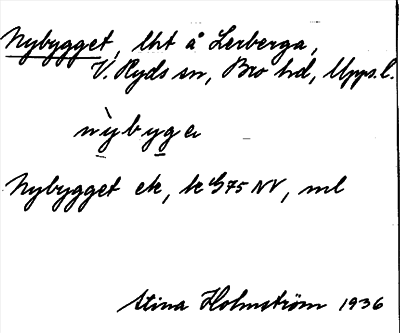 Nybygget, lht å Lerberga,
V. Ryds sn, Bro hd, Upps. l.
nỳbygeʌ
Nybygget ek, tr 75 NV, ml
Stina Holmström 1936